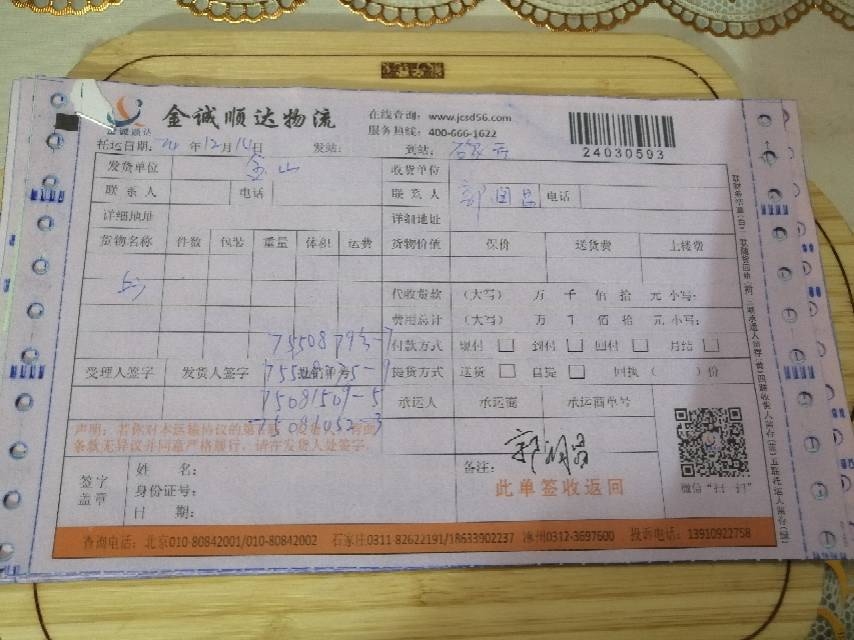 金诚顺达
金诚顺达物流
在线查询：www.jcsd56.com
服务热线：400-666-1622
24030593
托运日期： 年12月14日 发站： 到站：石家庄
发货单位 金山 收货单位
联系人 电话 联系人 郭润昌 电话
详细地址 详细地址
货物名称 件数 包装 重量 体积 运费 货物价值 保价 送货费 上楼费
代收货款 （大写） 万 千 佰 拾 元 小写：
费用总计 （大写） 万 千 佰 拾 元 小写：
付款方式 现付 到付 回付 月结
受理人签字 发货人签字 提货方式 送货 自提 回执（ ）份
75081509-5
75081052-3
承运人 承运商 承运商单号
条款无异议并同意严格履行，请在发货人处签字。
签字
盖章
姓 名：
身份证号：
日 期：
备注：
此单签收返回
微信“扫一扫”
查询电话：北京010-80842001/010-80842002 石家庄0311-82622191/18633902237 涿州0312-3697600 投诉电话：13910922758